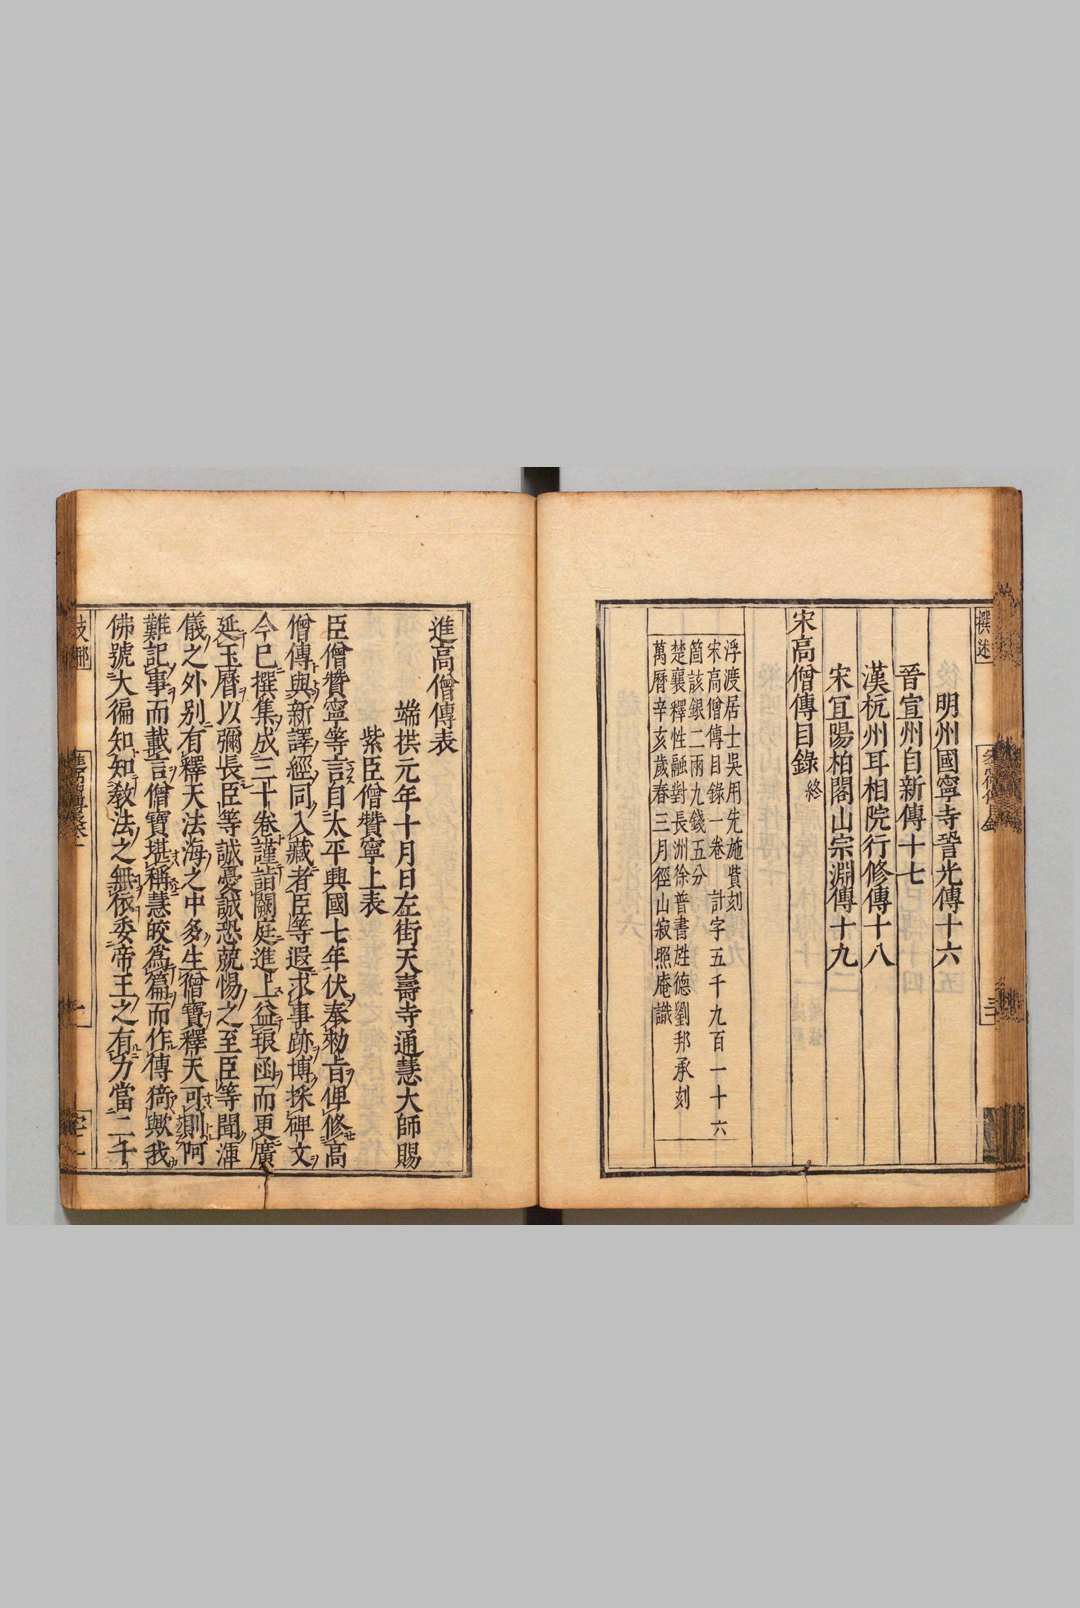 撰述
明州國寧寺䛒光傳十六
晉宣州自新傳十七
漢杭州耳相院行修傳十八
宋宜陽柏閣山宗淵傳十九
宋高僧傳目錄終
浮渡居士吳用先施貲刻
宋高僧傳目錄一卷 計字五千九百一十六
箇該銀二兩九錢五分
楚襄釋性融對長洲徐普書旌德劉邦承刻
萬曆辛亥歲春三月徑山寂照庵識
進高僧傳表
端拱元年十月日左街天壽寺通慧大師賜
紫臣僧贊寧上表
臣僧贊寧等言自太平興國七年伏奉勑旨俾修高
僧傳與新譯經同入藏者臣等遐求事跡博採碑文
今已撰集成三十卷謹詣闕庭進上益琅函而更廣
延玉曆以彌長臣等誠憂誠恐兢惕之至臣等聞渾
儀之外別有釋天法海之中多生僧寶釋天可則阿
難記事而載言僧寶堪稱慧皎爲篇而作傳猗歟我
佛號大徧知知教法之無依委帝王之有力當二千